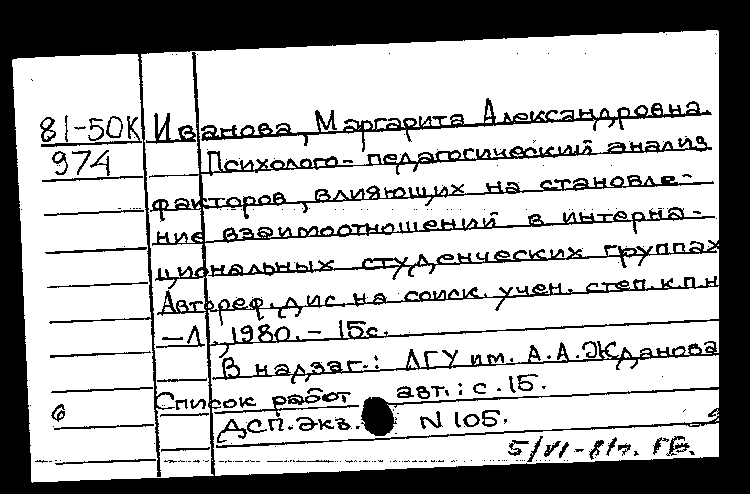 81-50К Иванова, Маргарита Александровна.
974 Психолого-педагогический анализ
факторов, влияющих на становле-
ние взаимоотношений в интерна-
циональных студенческих группах
Автореф. дис. на соиск. учен. степ. к.п.н
— Л., 1980. – 15с.
В надзаг.: ЛГУ им. А.А.Жданова
Список работ авт.: с.15.
6 Д.С.П. экз. N 105.